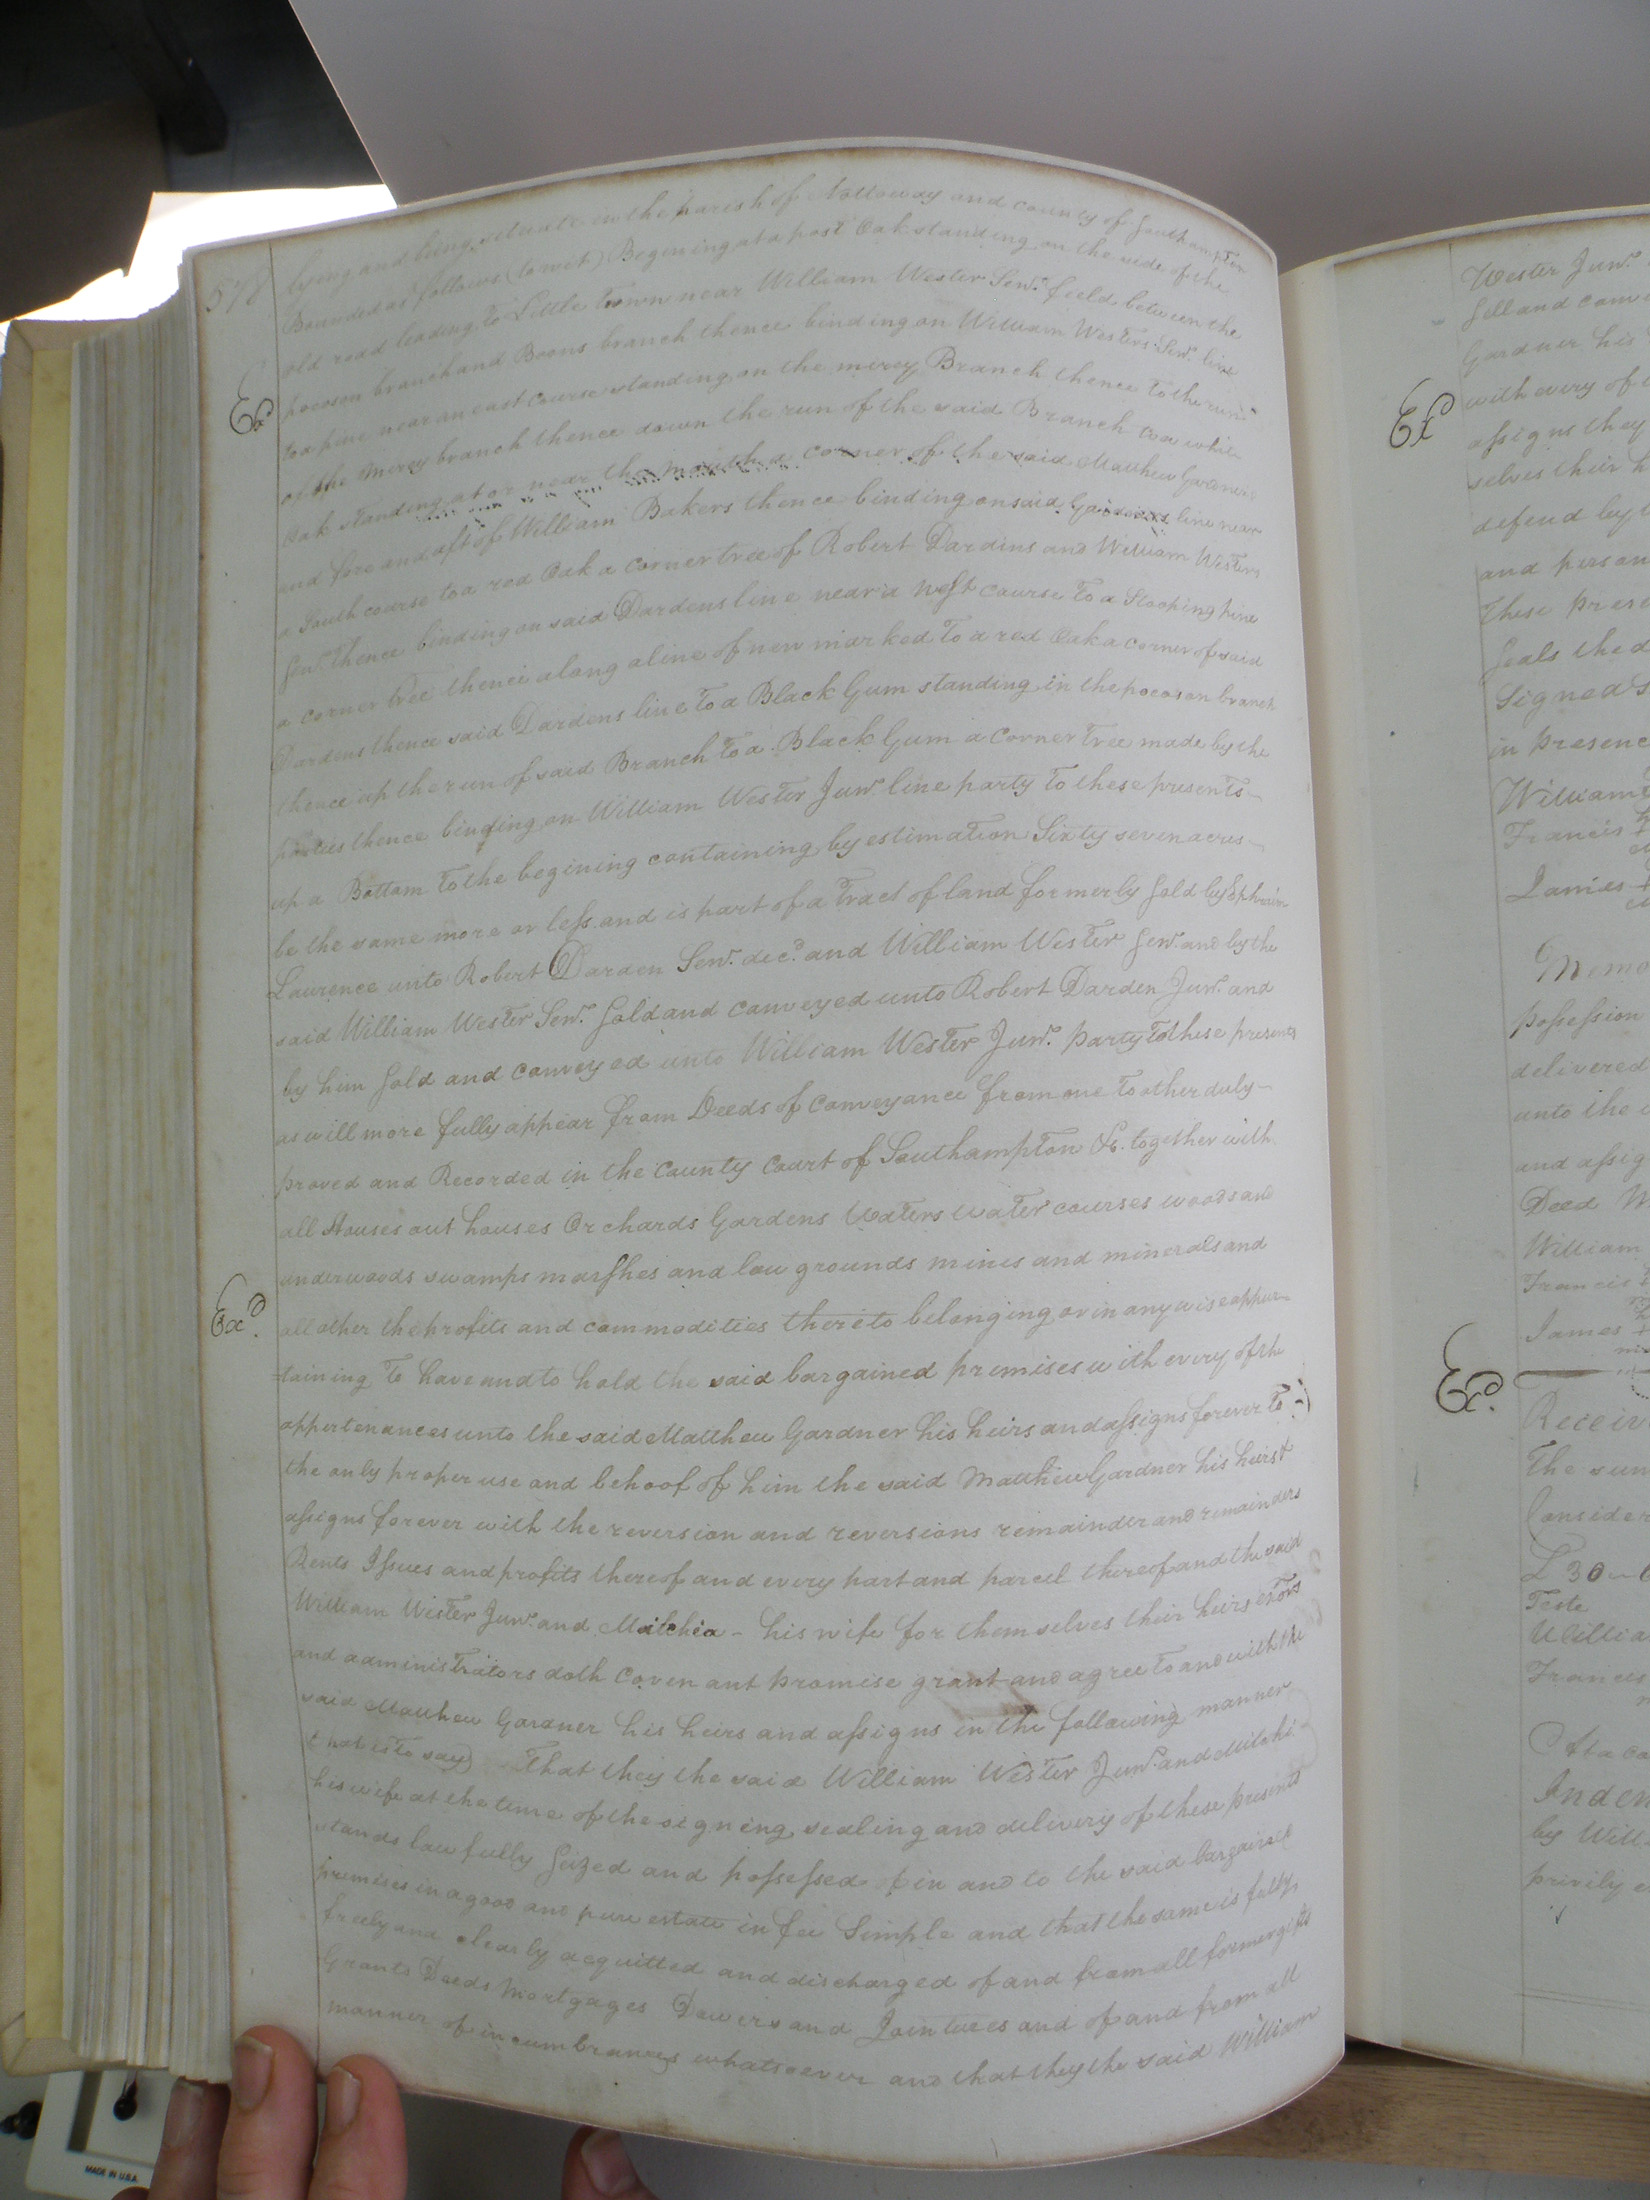 578
lying and being situate in the parish of Nottoway and county of Southampton
Bounded as follows (to wit) Begining at a post Oak standing on the side of the
old road leading to Little Town near William Wester Senr. field between the
pocoson branch and Boons branch thence binding on William Westers Senr. line
to a pine near an east course standing on the mirey Branch thence to the run
of the Mirey branch thence down the run of the said Branch to a white
Oak standing at or near the mouth a corner of the said Matthew Gardners
and fore and aft of William Bakers thence binding on said Gardners line near
a South course to a red Oak a corner tree of Robert Dardins and William Westers
Senr. thence binding on said Dardens line near a West course to a Stooping pine
a corner tree thence along a line of new marked to a red Oak a corner of said
Dardens thence said Dardens line to a Black Gum standing in the pocoson branch
thence up the run of said Branch to a Black Gum a corner Tree made by the
parties thence binding on William Wester Junr line party to these presents
up a Bottom to the begining containing by estimation Sixty seven acres
be the same more or less and is part of a Tract of land formerly Sold by Ephraim
Laurence unto Robert Darden Senr. decd. and William Wester Senr. and by the
said William Wester Senr. Sold and conveyed unto Robert Darden Junr. and
by him Sold and conveyed unto William Wester Junr. party to these presents
as will more fully appear from Deeds of conveyance from one to other duly
proved and Recorded in the county court of Southampton &c. together with
all Houses out houses Orchards Gardens Waters water courses woods and
underwoods swamps marshes and low grounds mines and minerals and
all other the profits and commodities thereto belonging or in any wise apper-
=taining To have and to hold the said bargained premises with every of the
appertenances unto the said Matthew Gardner his heirs and assigns forever to
the only proper use and behoof of him the said Matthew Gardner his heirs &
assigns forever with the reversion and reversions remainder and remainders
Rents Issues and profits thereof and every part and parcel thereof and the said
William Wester Junr. and Mitchia - his wife for themselves their heirs extors
and administrators doth covenant promise grant and agree to and with the
said Matthew Gardner his heirs and assigns in the following manner
(that is to say) That they the said William Wester Junr. and Mitchi
his wife at the time of the signing sealing and delivery of these presents
stands lawfully Seized and possessed of in and to the said bargained
premises in a good and pure estate in fee Simple and that the same is fully
freely and clearly acquitted and discharged of and from all former gifts
Grants Deeds Mortgages Dowers and Jointures and of and from all
manner of incumbrances whatsoever and that they the said William
Exd.
Exd.
Wester Junr.
Sell and conv
Gardner his
with every of t
assigns they
selves their h
defend by
and person
these prese
Seals the d
Signed S
in presenc
William
Francis
James +
Memo
possession
delivered
unto the
and assig
Deed
William
Francis
James +
Receiv
The sum
Consider
£ 30
Teste
Willia
Frances
At a co
Inden
by Will
privily e
Ex
Exd.
MADE IN U.S.A.